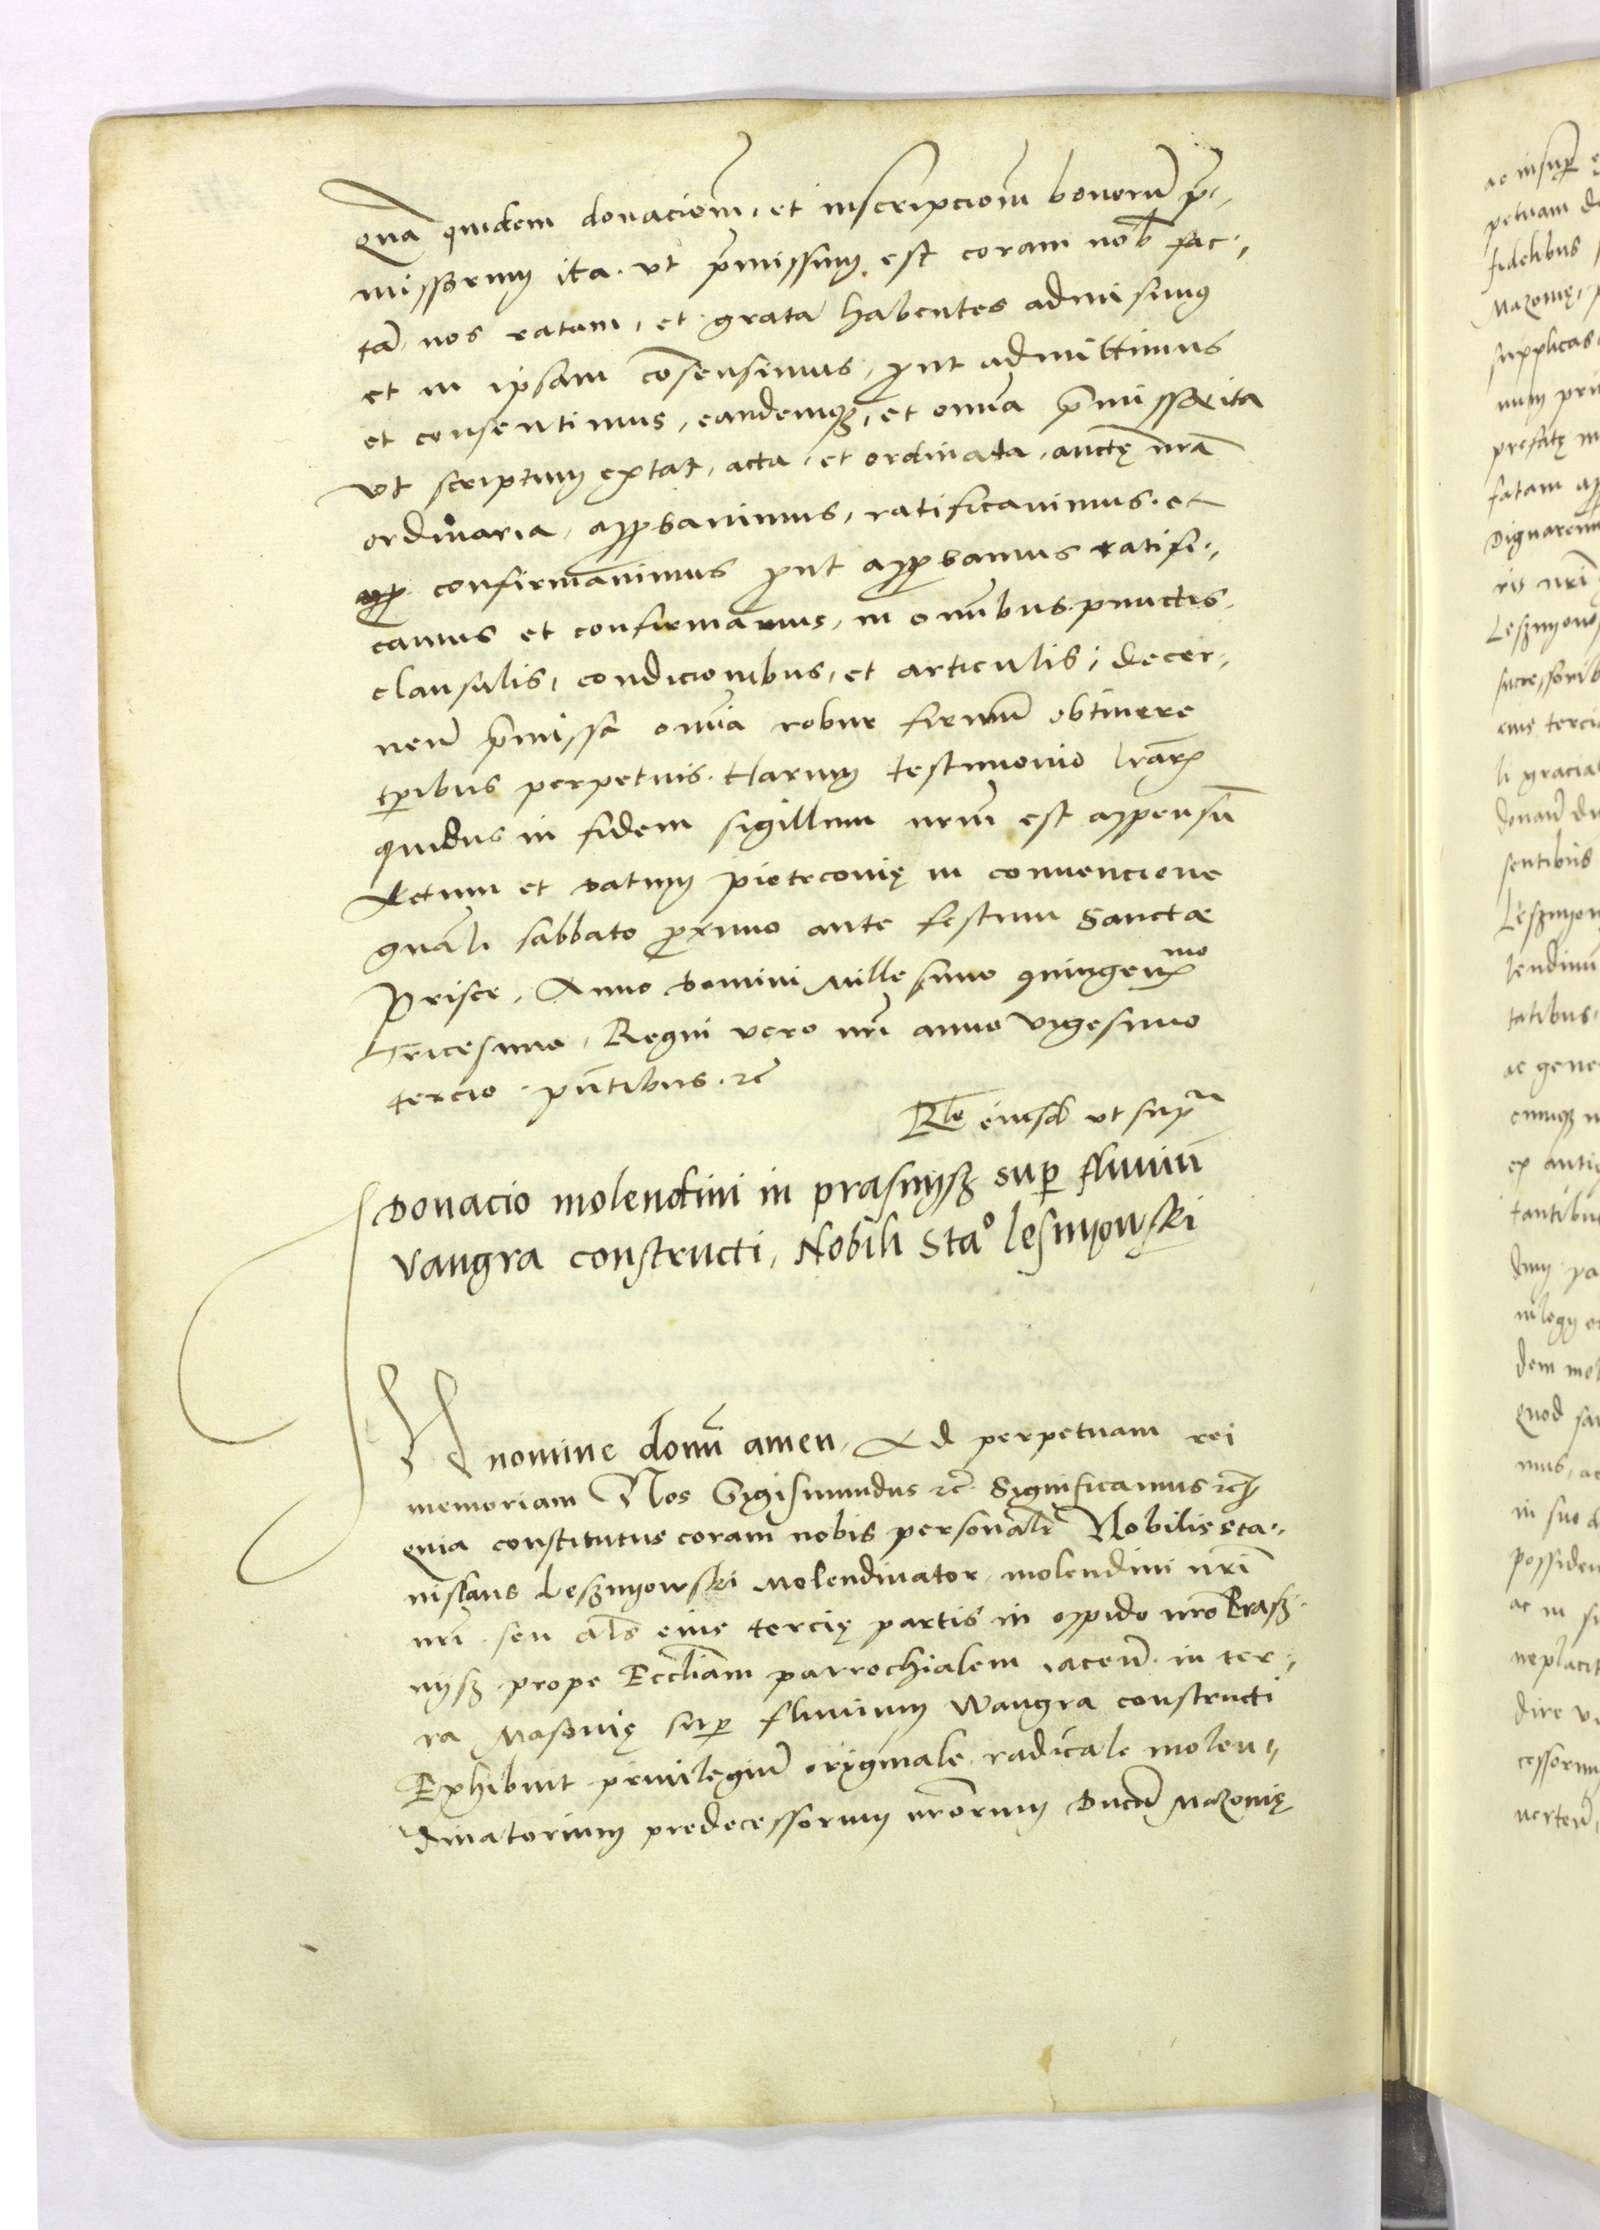 Quā quidem donacioem, et inscripcioem bonorū p̄-
missorum ita. ut p̄missum est coram nob̄ fac-
tā, nos ratam, et gratā habentes admisimus
et in ipsam cōsensimus, p̱ut admittimus
et consentimus, eandemqȝ, et om̄ia p̄missa ita
ut scriptum extat, acta, et ordinata, auctę nr̄a
ordinaria, app̱bavimus, ratificavimus. et
confirmavimus p̱ut app̱bamus ratifi-
camus et confirmamus, in om̄ibus punctis.
clausulis, condicionibus, et articulis, decer-
neñ p̄missa om̄ia robur firmū obtinere
tp̄ribus perpetuis. Harum testimonio lrār̄
quibus in fidem sigillum nrm̄ est appensū
Actum et datum pioteconię in convencione
gnāli sabbato p̱ximo ante festum Sanctæ
Prisce, Anno domini Millesimo quingenᵐᵒ
Tricesimo, Regni vero nrī anno vigesimo
tercio. pn̄tibus. ꝛc̄
Rl̄o eiusd̄ ut supᵃ
Donacio molendini in prasnysȝ sup̱ fluviū
vangra constructi, Nobili Sta° lesnyowski
IN nomine domi̅ amen, Ad perpetuam rei
memoriam Nos Sygismundus ꝛc̄ Significamus ꝛc̄
quia constitutus coram nobis personalr̄ Nobilis Sta-
nislaus Lesznyowski Molendinator molendini nrī
nrī seu al̄s eius tercię partis in oppido nr̄o Prasȝ-
nysȝ prope Eccl̄iam parrochialem iaceñ. in ter-
ra Masovię sup̱ fluvium Wangra constructi
Exhibuit privilegiū originale radicale molen-
dinatorium predecessorum nr̄orum Ducū Mazovię
ac insup̱
petuam
fidelibus
Mazovię,
supplicas
fatam
ris nrī
eius terci
sentibus
tatibus,
ac gene
ex anti
dem mol
quod
mus, ac
in suo
possiden
ac in
dire
cessorum